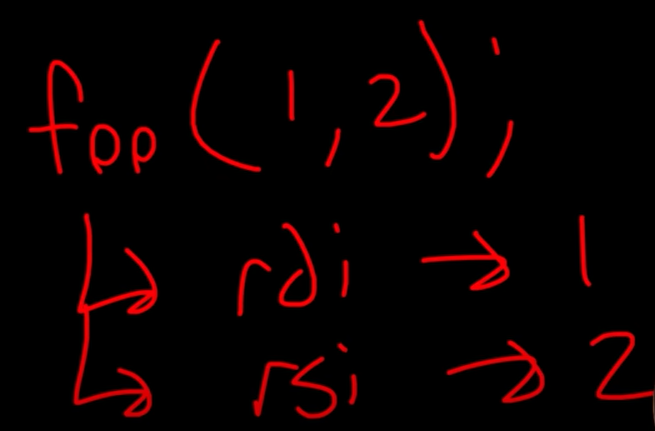 foo(1,2);
↳ rdi → 1
↳ rsi → 2